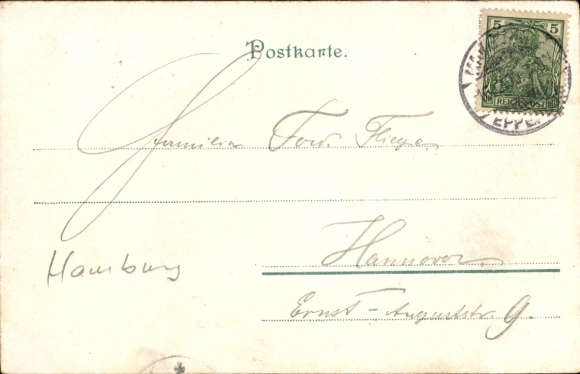 5 5
REICHSPOST
EPPE
Postkarte.
Familie Ferd. Fliege,
Hannover.
Hamburg
Ernst-Auguststr. 9.